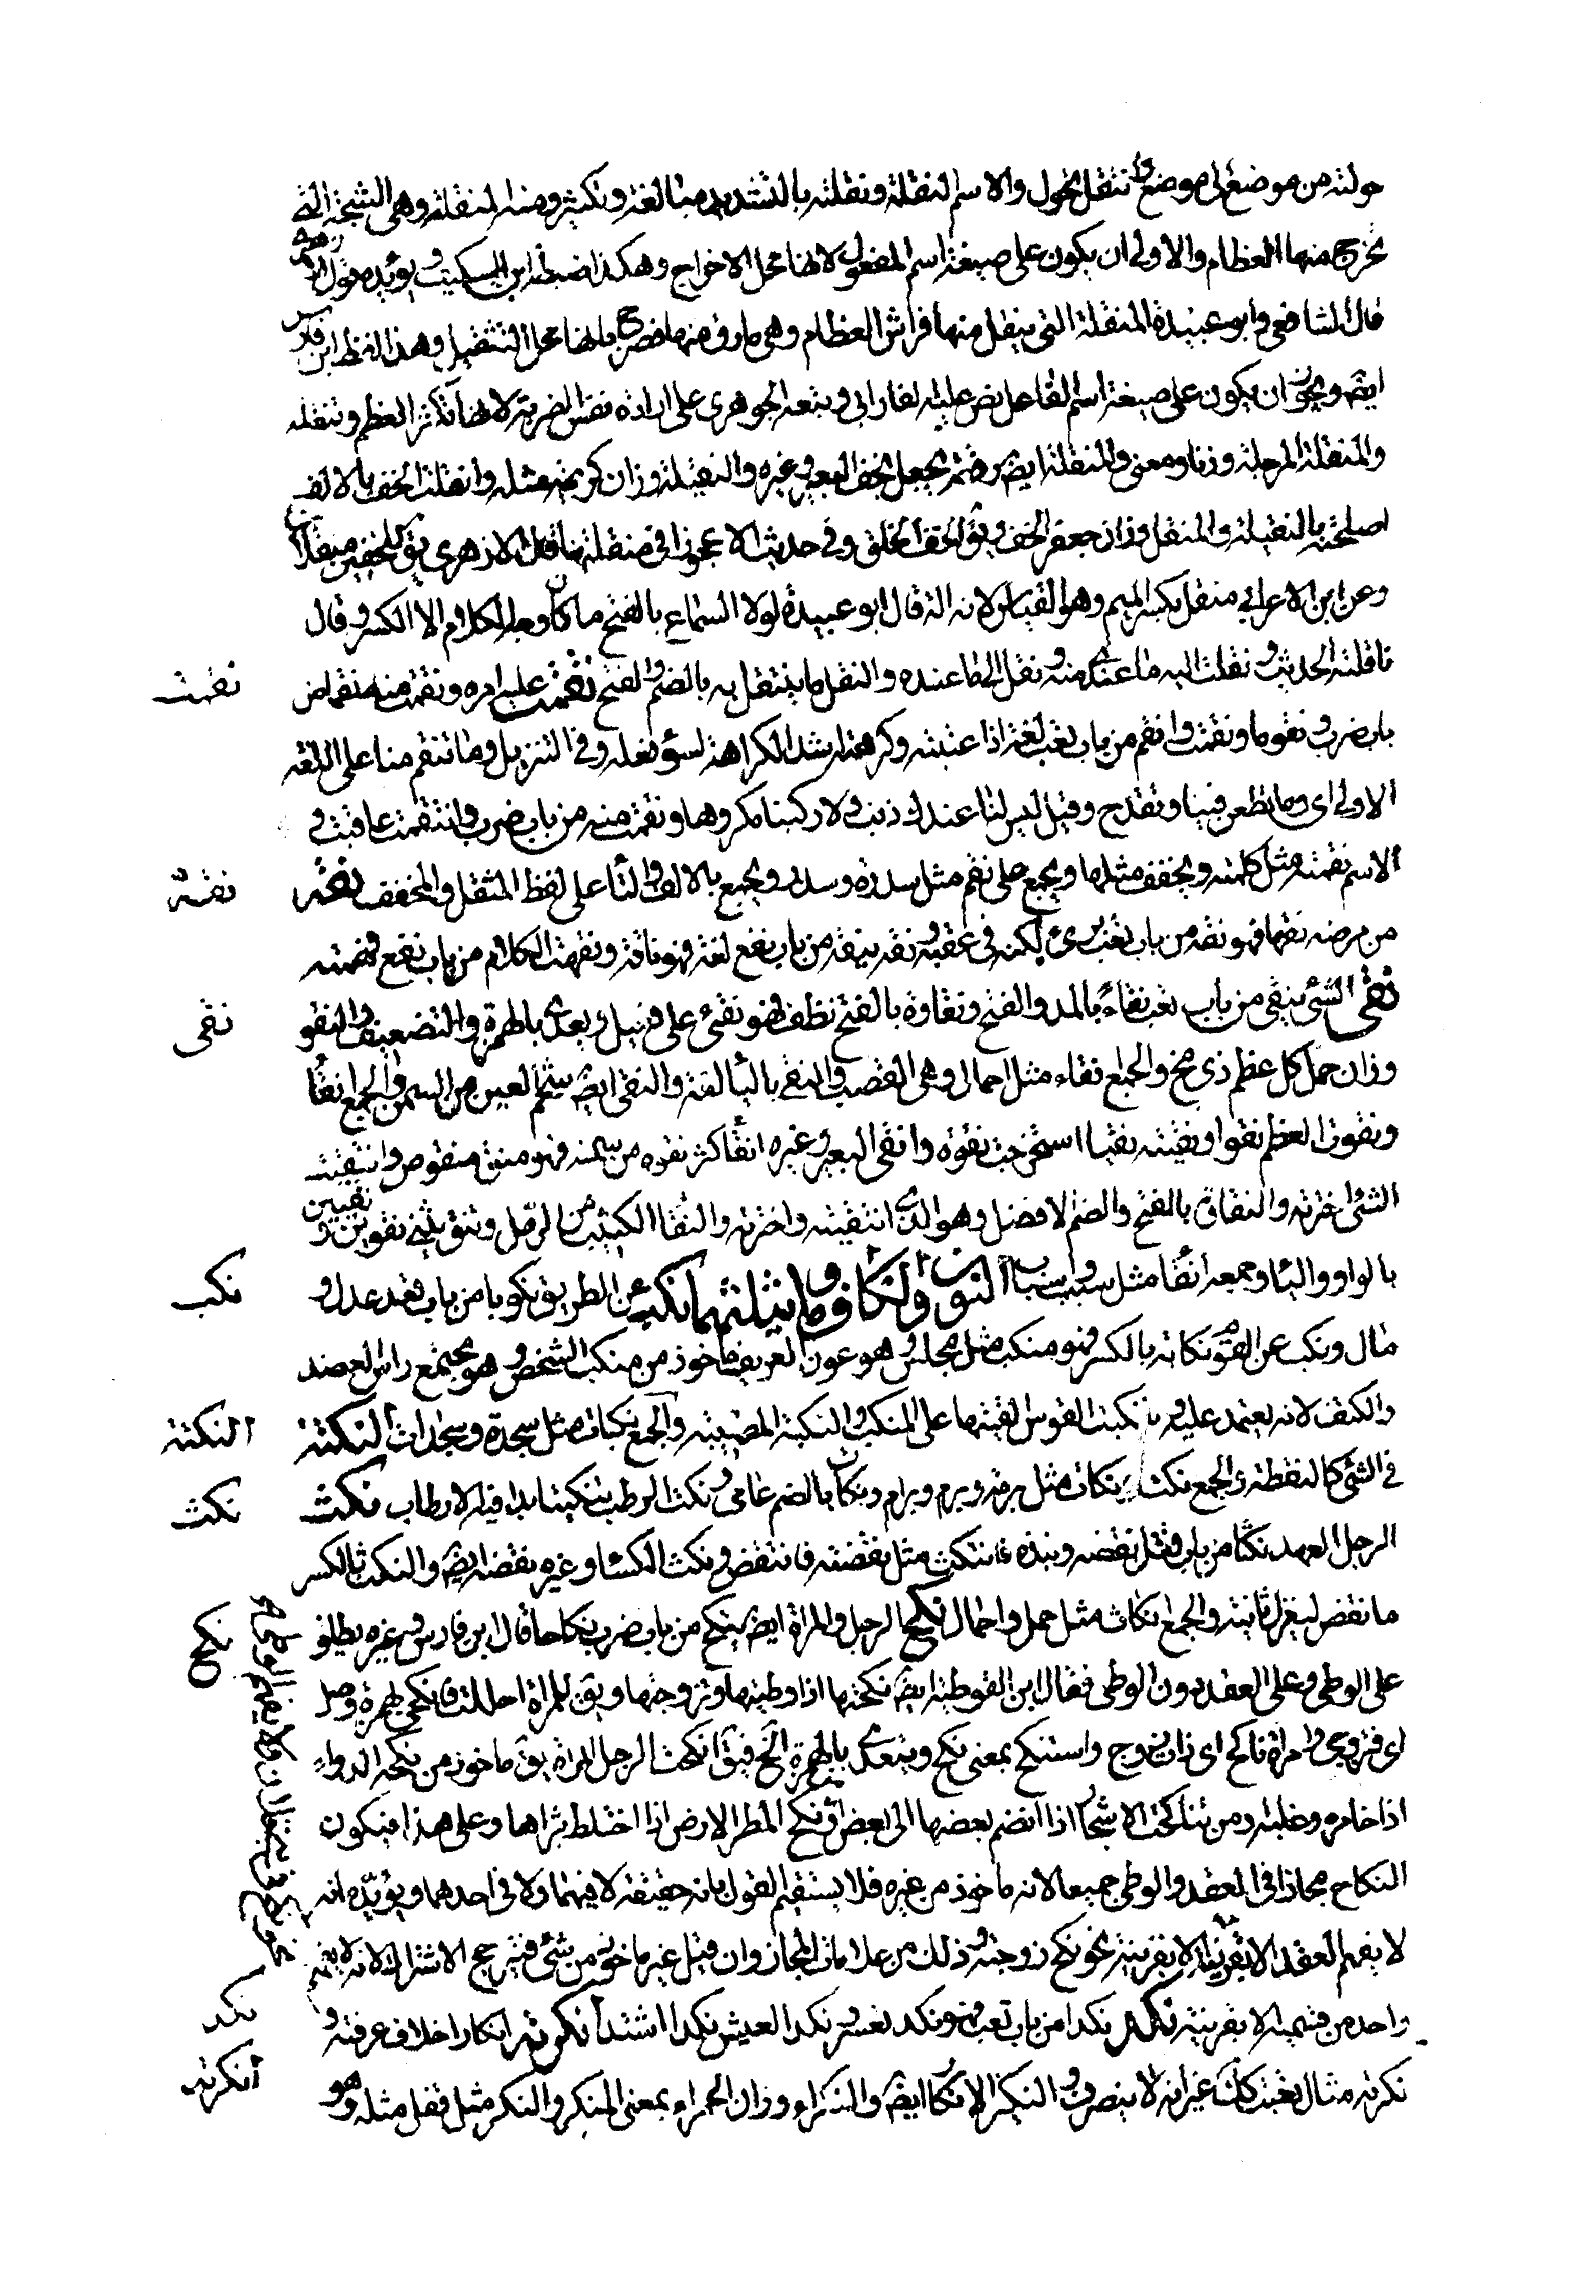 حولته من موضع الى موضع وانتقل تحول والاسم النقلة ونقلته بالتشديد مبالغة وتكثير ومنه المنقلة وهي الشجة التي
تخرج منها العظام والاولى ان يكون على صيغة اسم المفعول لانها محل الاخراج وهكذا ضبطه ابن السكيت ويؤيده قول الازهري
قال الشافعي وابو عبيدة المنقلة التي ينقل منها فراش العظام وهي مارق منها فصرح بانها محل التنقيل وهذا لفظ ابن فارس
ايضا ويجوز ان يكون على صيغة اسم الفاعل نص عليه الفارابي وتبعه الجوهري على ارادة نفس الضربة لانها تكسر العظم وتنقله
والمنقلة المرحلة وزنا ومعنى والمنقلة ايضا رقعة يجعل بخف البعير وغيره والنقيلة وزان كريمة مثله وانقلت الخف بالالف
اصلحته بالنقيلة والمنقل وزان جعفر الخف ويق الخف الخلق وفي حديث الا عجوزا في منقليها قال الازهري يق للخفين منقلان
وعن ابن الاعرابي منقل بكسر الميم وهو القياس لانه الة قال ابو عبيدة لولا السماع بالفتح ما كان وجه الكلام الا الكسر وقال
ناقلته الحديث نقلت اليه ما عندي منه ونقل الي ما عنده والنقل ما يتنقل به بالضم والفتح نقمت عليه امره ونقمت منه نقما من
نقمت
باب ضرب ونقوما ونقمت وانقم من باب تعب لغة اذا عتبته وكرهته اشد الكراهة لسوء فعله وفي التنزيل وما تنقم منا على اللغة
الاولى اي وما تطعن فينا وتقدح وقيل ليس لنا عندك ذنب ولا ركبنا مكروها ونقمت منه من باب ضرب وانتقمت عاقبت و
الاسم نقمة مثل كلمة ويخفف مثلها ويجمع على نقم مثل سدرة وسدر ويجمع بالالف والتا على لفظ المثقل والمخفف نقه
نقه
من مرضه نقها فهو نقه من باب تعب برئ لكنه في عقبه ونقه ينقه من باب نفع لغة فهو ناقه ونقهت الكلام من باب نفع فهمته
نقى الشئ ينقى من باب تعب نقاء بالمد والفتح ونقاوة بالفتح نظف فهو نقي على فعيل ويعدى بالهمزة والتضعيف والنقو
نقى
وزان حمل كل عظم ذي مخ والجمع انقاء مثل احمال وهي القصب والنقي باليا لغة والنقي ايضا شحم العين من السمن والجمع انقا
ونقوت العظم نقوا ونقيته نقيا استخرجت نقوه وانقى البعير وغيره انقا كثر نقوه من سمنه فهو منق منقوص وانتقيت
الشئ اخترته والنقاوة بالفتح والضم الافضل وهو الذي انتقيته واخترته والنقا الكثيب من الرمل ويثنى نقوين ونقيين
بالواو واليا وجمعه انقا مثل سبب واسباب النون والكاف وما يثلثهما نكب عن الطريق نكوبا من باب قعد عدل و
نكب
مال ونكب عن القوم نكابة بالكسر فهو منكب مثل مجلس وهو عون العريف ماخوذ من منكب الشخص وهو مجتمع راس العضد
والكتف لانه يعتمد عليه وتنكبت القوس القيتها على المنكب والنكبة المصيبة والجمع نكبات مثل سجدة وسجدات النكتة
النكتة
في الشئ كالنقطة والجمع نكت ونكات مثل برمة وبرم وبرام ونكات بالضم عامي ونكت الرطب تنكيتا بدا فيه الارطاب نكث
نكث
الرجل العهد نكثا من باب قتل نقضه ونبذه فانتكث مثل نقضته فانتقض ونكث الكسا وغيره نقضه ايضا والنكث بالكسر
ما نقض ليغزل ثانية والجمع انكاث مثل حمل واحمال نكح الرجل والمراة ايضا ينكح من باب ضرب نكاحا قال ابن فارس وغيره يطلق
نكح
على الوطي وعلى العقد دون الوطي فقال ابن القوطية ايضا نكحتها اذا وطيتها وتزوجتها ويق للمراة حللت فانكحي بهمزة وصل
اي فتزوجي وامراة ناكح اي ذات زوج واستنكح بمعنى نكح ويتعدى بالهمزة الى اخر فيق انكحت الرجل المراة يق ماخوذ من نكحه الدواء
اذا خامره وغلبه ومن تناكحت الاشجار اذا انضم بعضها الى بعض او نكح المطر الارض اذا اختلط بثراها وعلى هذا فيكون
النكاح مجازا في العقد والوطي جميعا لانه ماخوذ من غيره فلا يستقيم القول بانه حقيقة لا فيهما ولا في احدهما ويؤيده انه
لا يفهم العقد الا بقرينة نحو نكح زوجته وذلك من علامات المجاز وان قيل غير ماخوذ من شئ فيترجح الاشتراك لانه لا يفهم
واحد من قسميه الا بقرينة نكد نكدا من باب تعب فهو نكد تعسر ونكد العيش نكدا اشتد انكرته انكارا خلاف عرفته و
نكد
نكرته مثال تعبت كذلك غير انه لا يتصرف والنكير الانكار ايضا والنكراء وزان الحمراء بمعنى المنكر والنكر مثل قفل مثله وهو
انكرته